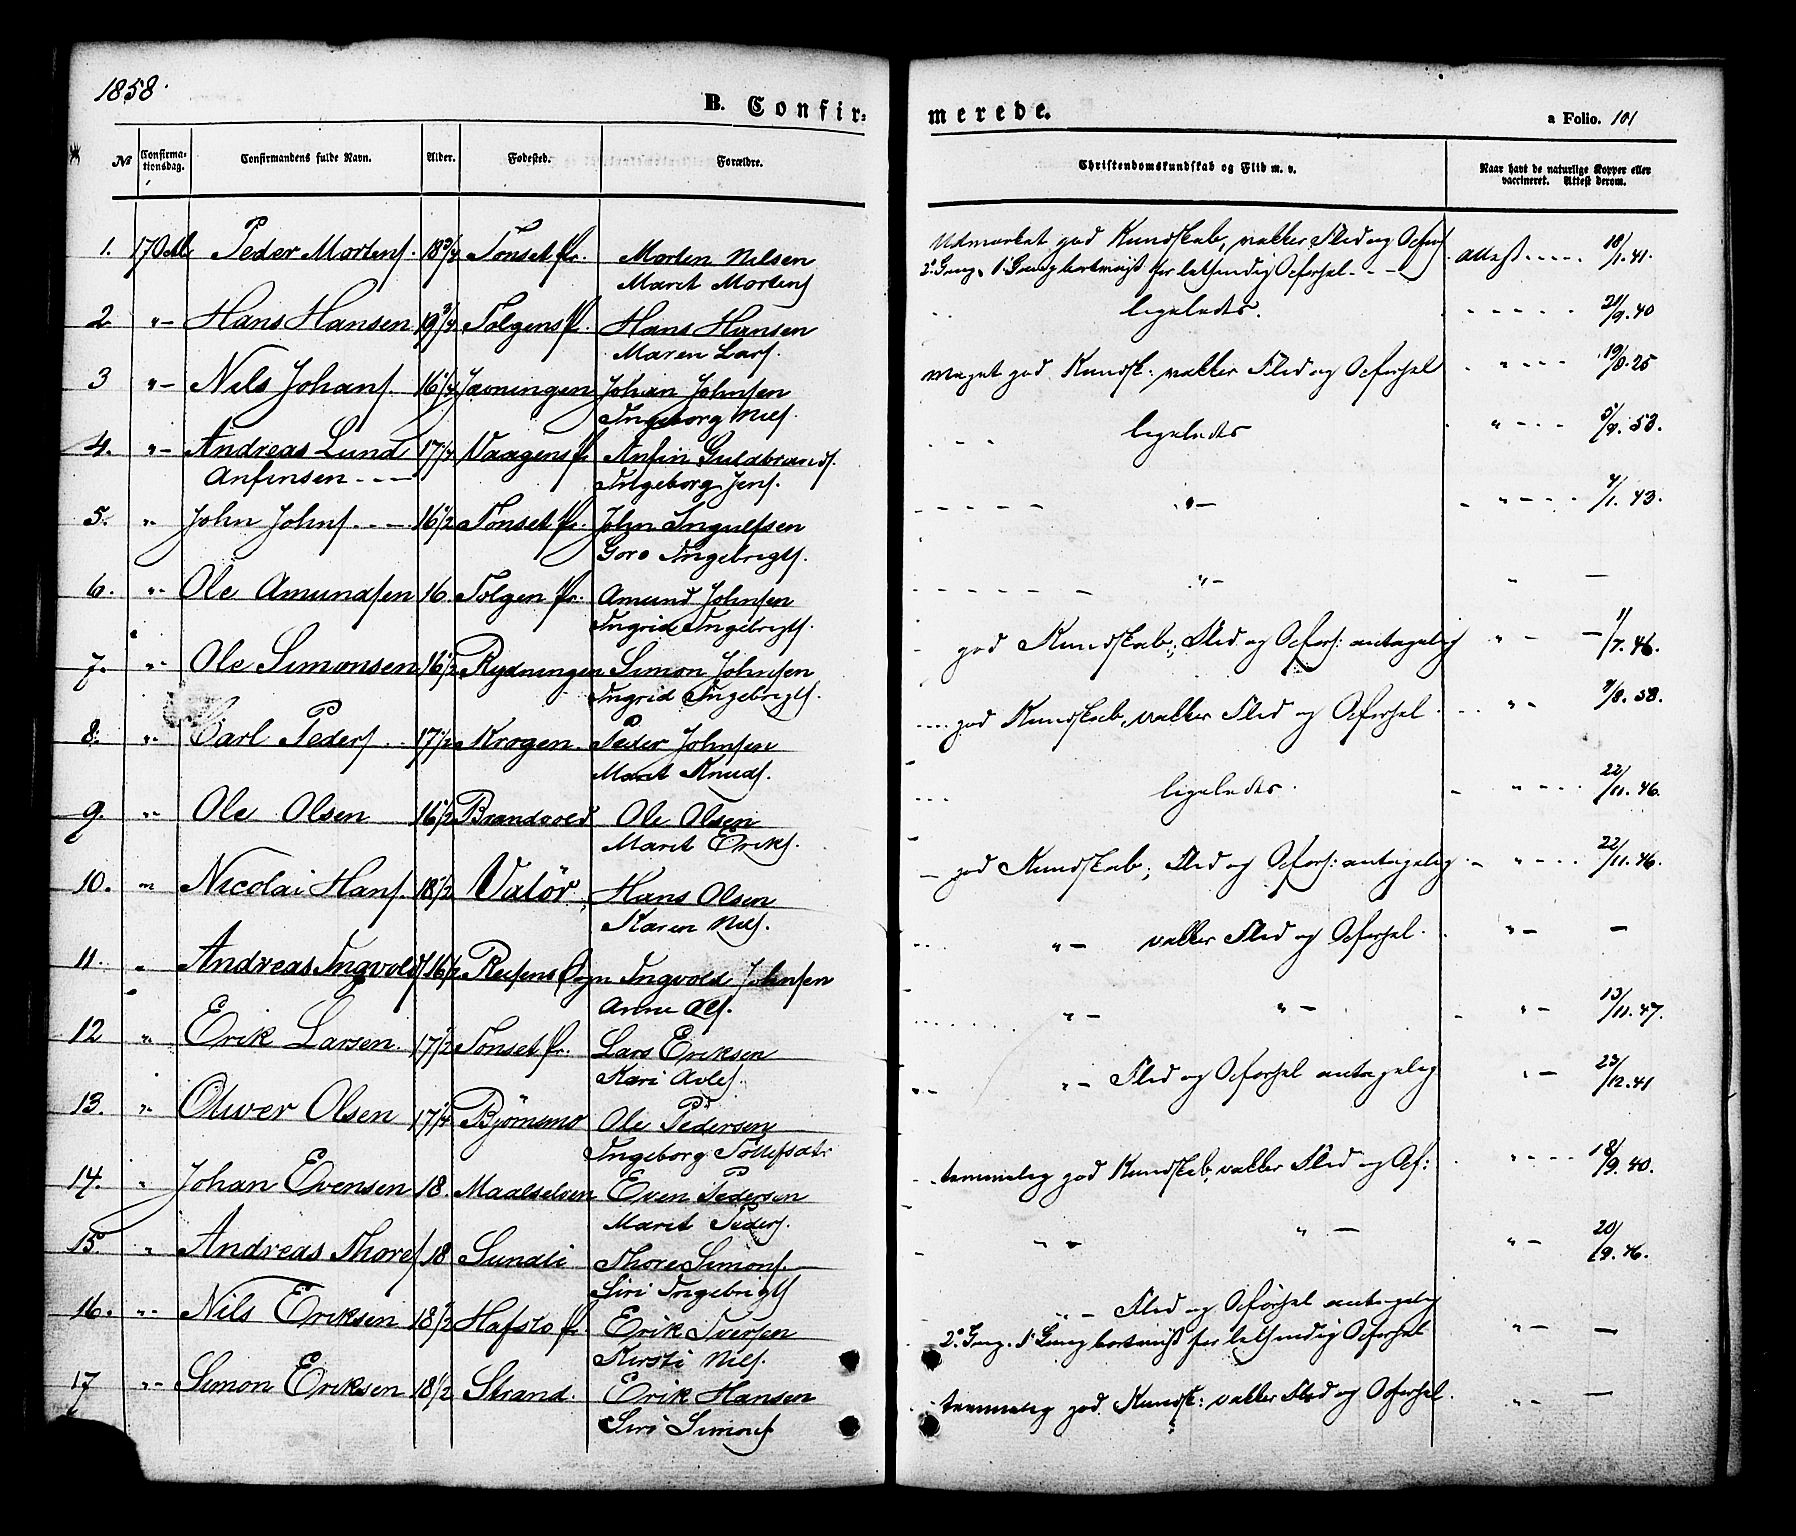 1858.
B. Confir- merede. a Folio. 101
No Confirma-tionsdag. Confirmandens fulde Navn. Alder. Fødested. Forældre. Christendomskundskab og Flid m. v. Naar havt de naturlige Kopper eller vaccineret. Attest derom.
1. 17 Octbr Peder Mortens. 18 3/4 Tonset Pr. Morten Nilsen Udmærket god Kundskab, vakker Flid og Opførs attest - - - - - 18/1. 41.
Maret Mortens 2. Gang. 1 Gang bortvist for letsindig Opførsel - - -
2 "- Hans Hansen 19 3/4 Tolgens Pr. Hans Hansen ligeledes. - - - - - 21/9. 40
Maren Lars.
3 "- Nils Johans. 16 1/4 Johan Johnsen meget god Kundsk: vakker Flid og Opførsel " - - - 19/8. 25
Ingeborg Nils.
4. "- Andreas Lund 17 1/4 Vaagens Pr Anfin Guldbrands. ligeledes " - - - 5/8. 53.
Anfinsen - - - Ingeborg Jens.
5. "- John Johns. - - - 16 1/2 Tonset Pr. John Ingulfsen - - - - "- " - - - - 4/1. 43.
Goro Ingebrigts.
6. "- Ole Amundsen 16. Tolgen Pr. Amund Johnsen - - - - - - - "- " -
Ingrid Ingebrigts.
7. "- Ole Simonsen 16 1/2 Rydningen Simon Johnsen god Kundskab, Flid og Opførs: antagelig " - - 1/7. 46.
Ingrid Ingebrigts.
8. "- Carl Peders. 17 1/2 Krogen. Peder Johnsen god Kundskab, vakker Flid og Opførsel. " -
Maret Knuds.
9. "- Ole Olsen 16 1/2 Brandvold Ole Olsen ligeledes. " - - - 22/11. 46.
Maret Eriks.
10. "- Nicolai Hans. 18 1/2 Valör Hans Olsen god Kundskab, Flid og Opførs: antagelig " - - - 22/11. 46.
Karen Nils.
11. " Andreas Ingvolds 16 1/2 Reisens Sogn Ingvold Johnsen "- vakker Flid og Opførsel. " - -
Anne Ols.
12 " Erik Larsen. 17 1/2 Tonset Pr. Lars Eriksen "- "- " - 13/11. 47.
Kari
13. "- Oliver Olsen 17 1/4 Bjørnsmo Ole Pedersen "- Flid og Opførsel antagelig " - 23/12. 41
Ingeborg Tollefsdtr
14. " Johan Evensen 18. Maalselven Even Pedersen temmelig god Kundskab, vakker Flid og Opf: " - - - 18/9. 40.
Maret Peders.
15. " Andreas Thores 18 Sundli Thore Simons. "- "- " - 20/9. 46.
Siri Ingebrigts
16. "- Nils Eriksen 18 1/2 Hafslo Pr Erik Iversen "- Flid og Opførsel antagelig " - -
Kirsti Nils. 2. Gang. 1 Gang bortvist for letsindig Opførsel
17 "- Simon Eriksen 18 1/2 Strand. Erik Hansen temmelig god Kundsk: vakker Flid og Opførsel. " - -
Siri Simons